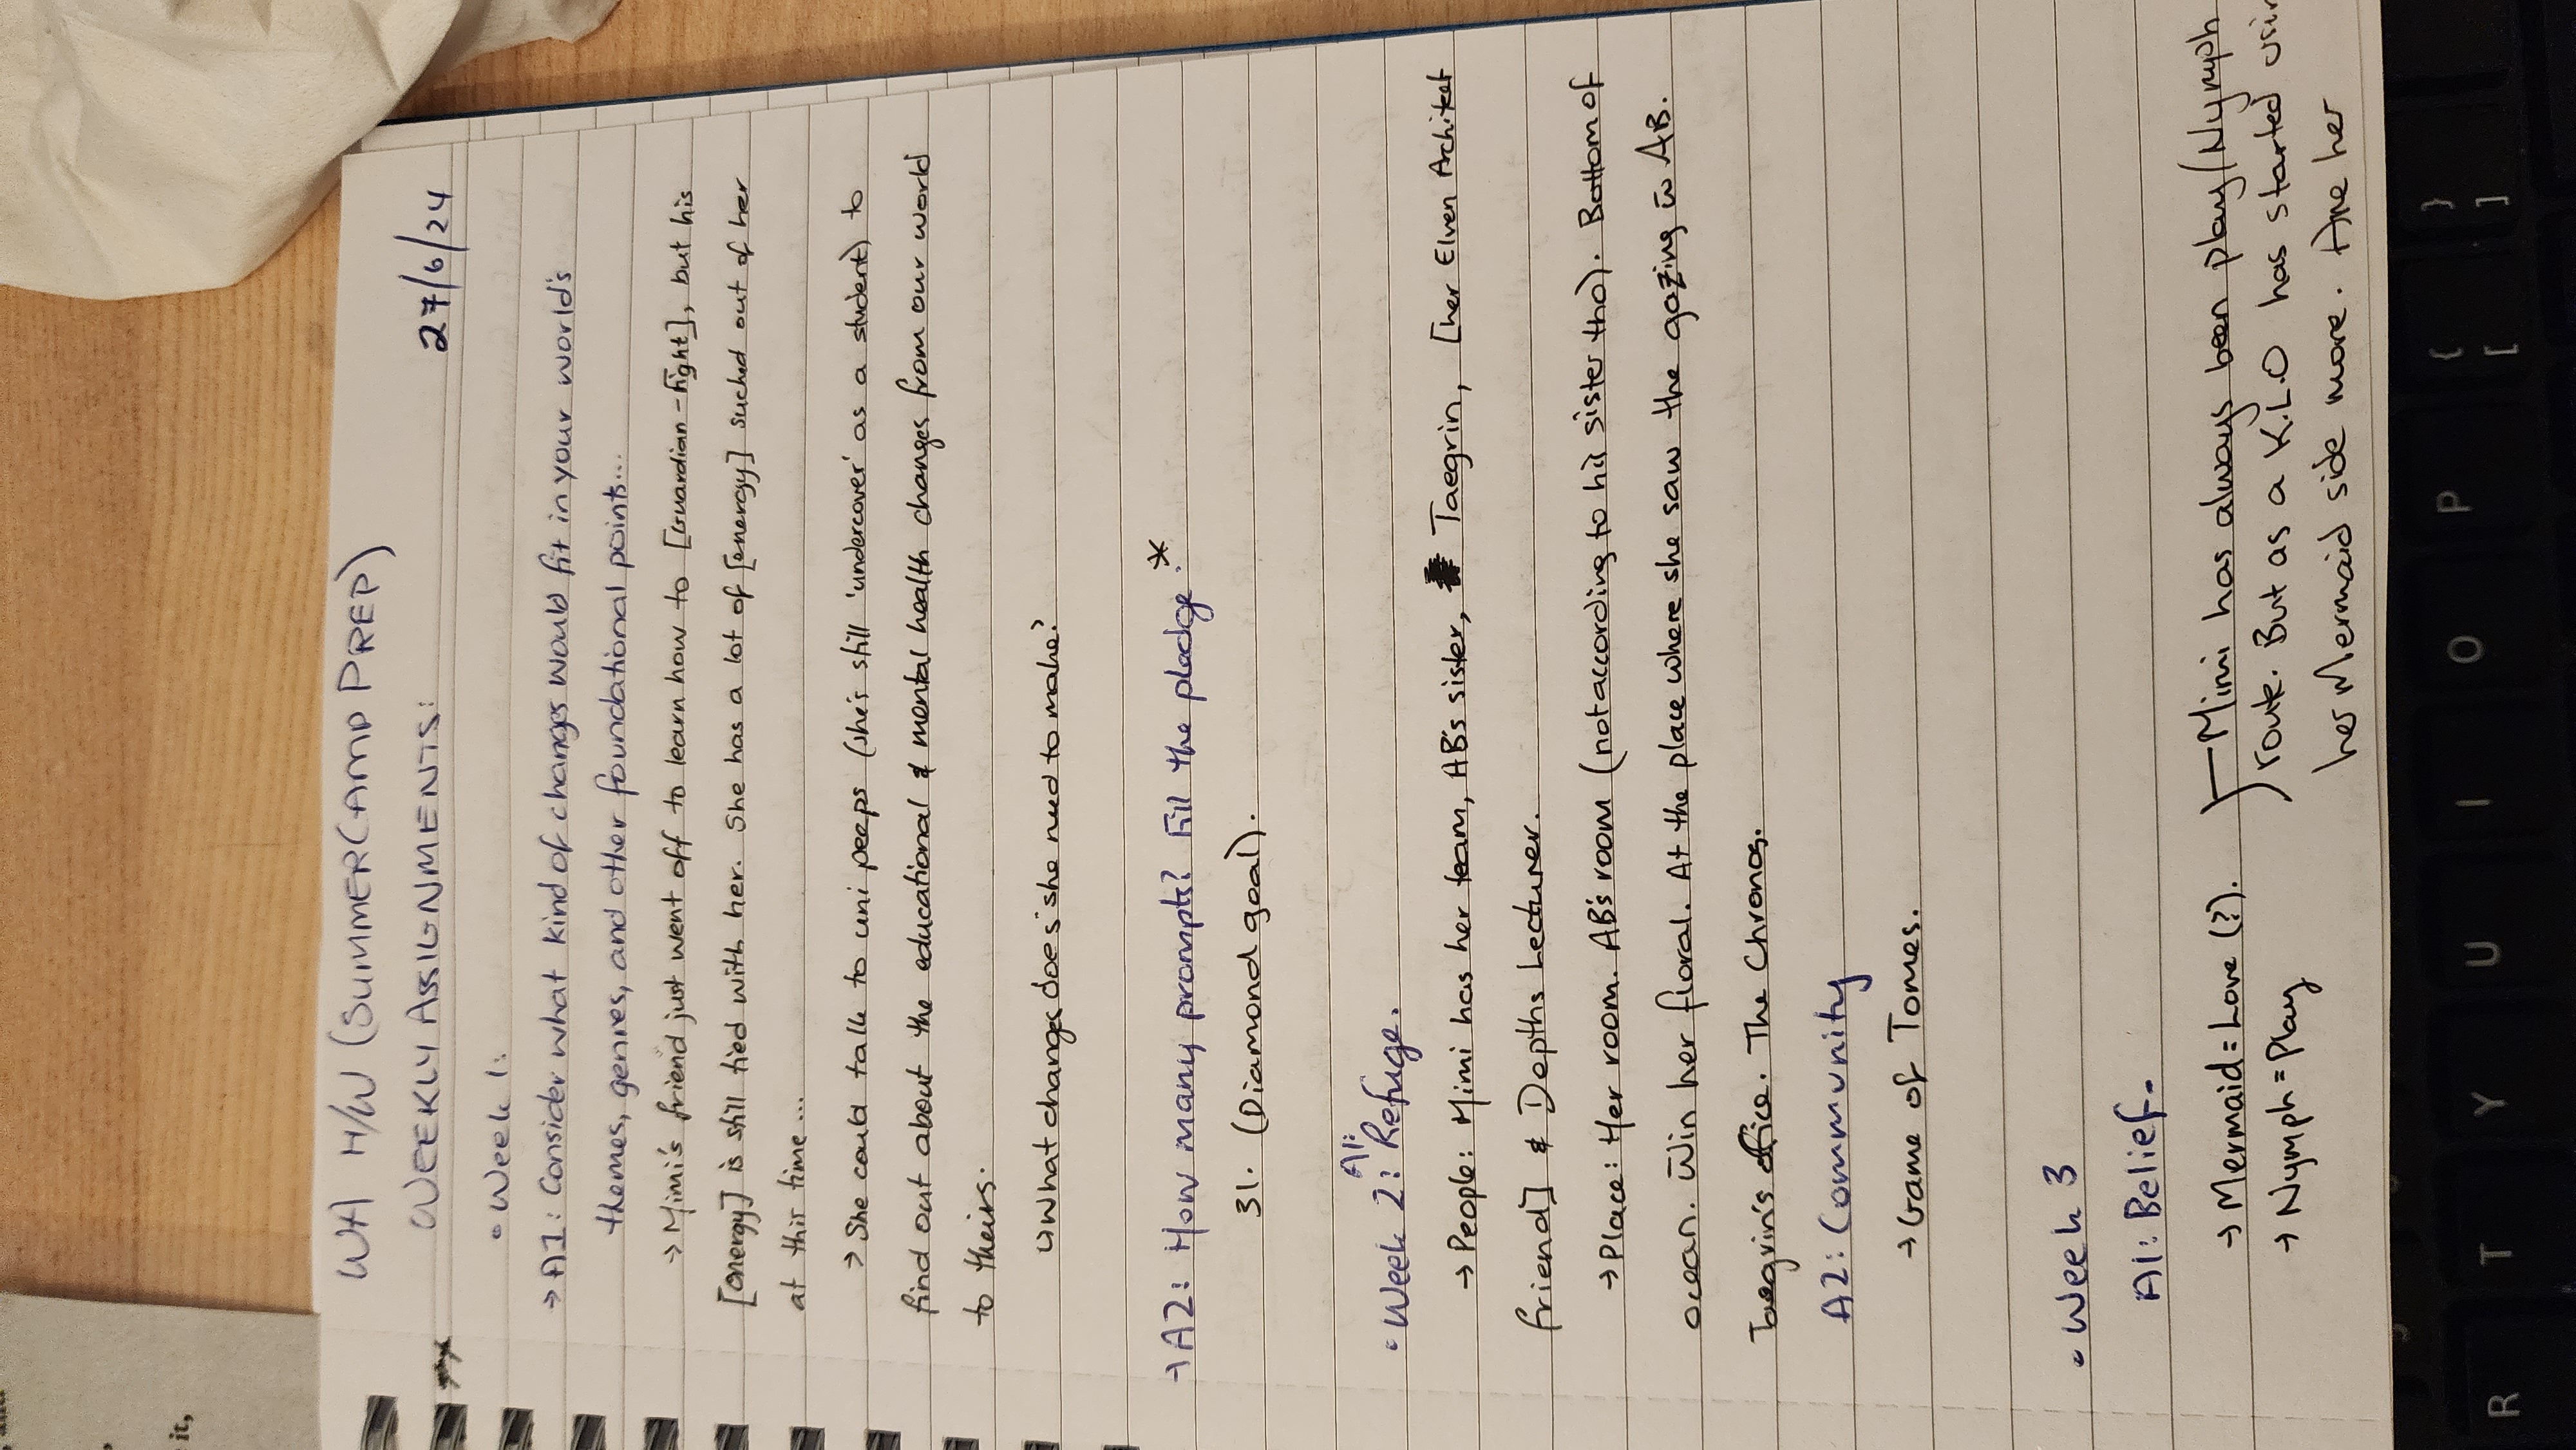 WA H/W (SUMMERCAMP PREP)
WEEKLY ASSIGNMENTS: 27/6/24
• Week 1:
→ A1: Consider what kind of changes would fit in your world's
themes, genres, and other foundational points...
→ Mimi's friend just went off to learn how to [Guardian-fight], but his
[energy] is still tied with her. She has a lot of [energy] sucked out of her
at this time...
→ She could talk to uni peeps (she's still 'undercover' as a student) to
find out about the educational & mental health changes from our world
to theirs.
↳ What changes does she need to make?
→ A2: How many prompts? Fill the pladge.*
31. (Diamond goal).
• Week 2: A1: Refuge.
→ People: Mimi has her team, AB's sister, Taegrin, [her Elven Architect
friend] & Depths Lecturer.
→ Place: Her room. AB's room (not according to hil sister tho). Bottom of
ocean. Win her floral. At the place where she saw the gazing w AB.
Taegrin's office. The Chronos.
A2: Community
→ Game of Tomes.
• Week 3
A1: Belief.
→ Mermaid = Love (?).
→ Nymph = Play
Mimi has always been play/Nymph
route. But as a K.L.O has started usin
her Mermaid side more. The her
R T Y U I O P { [ } ]
it,